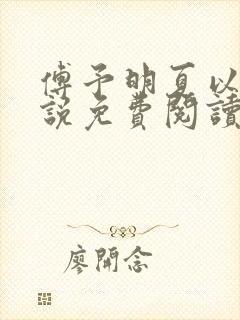 傅予明夏以
說免費閱讀
廖開念